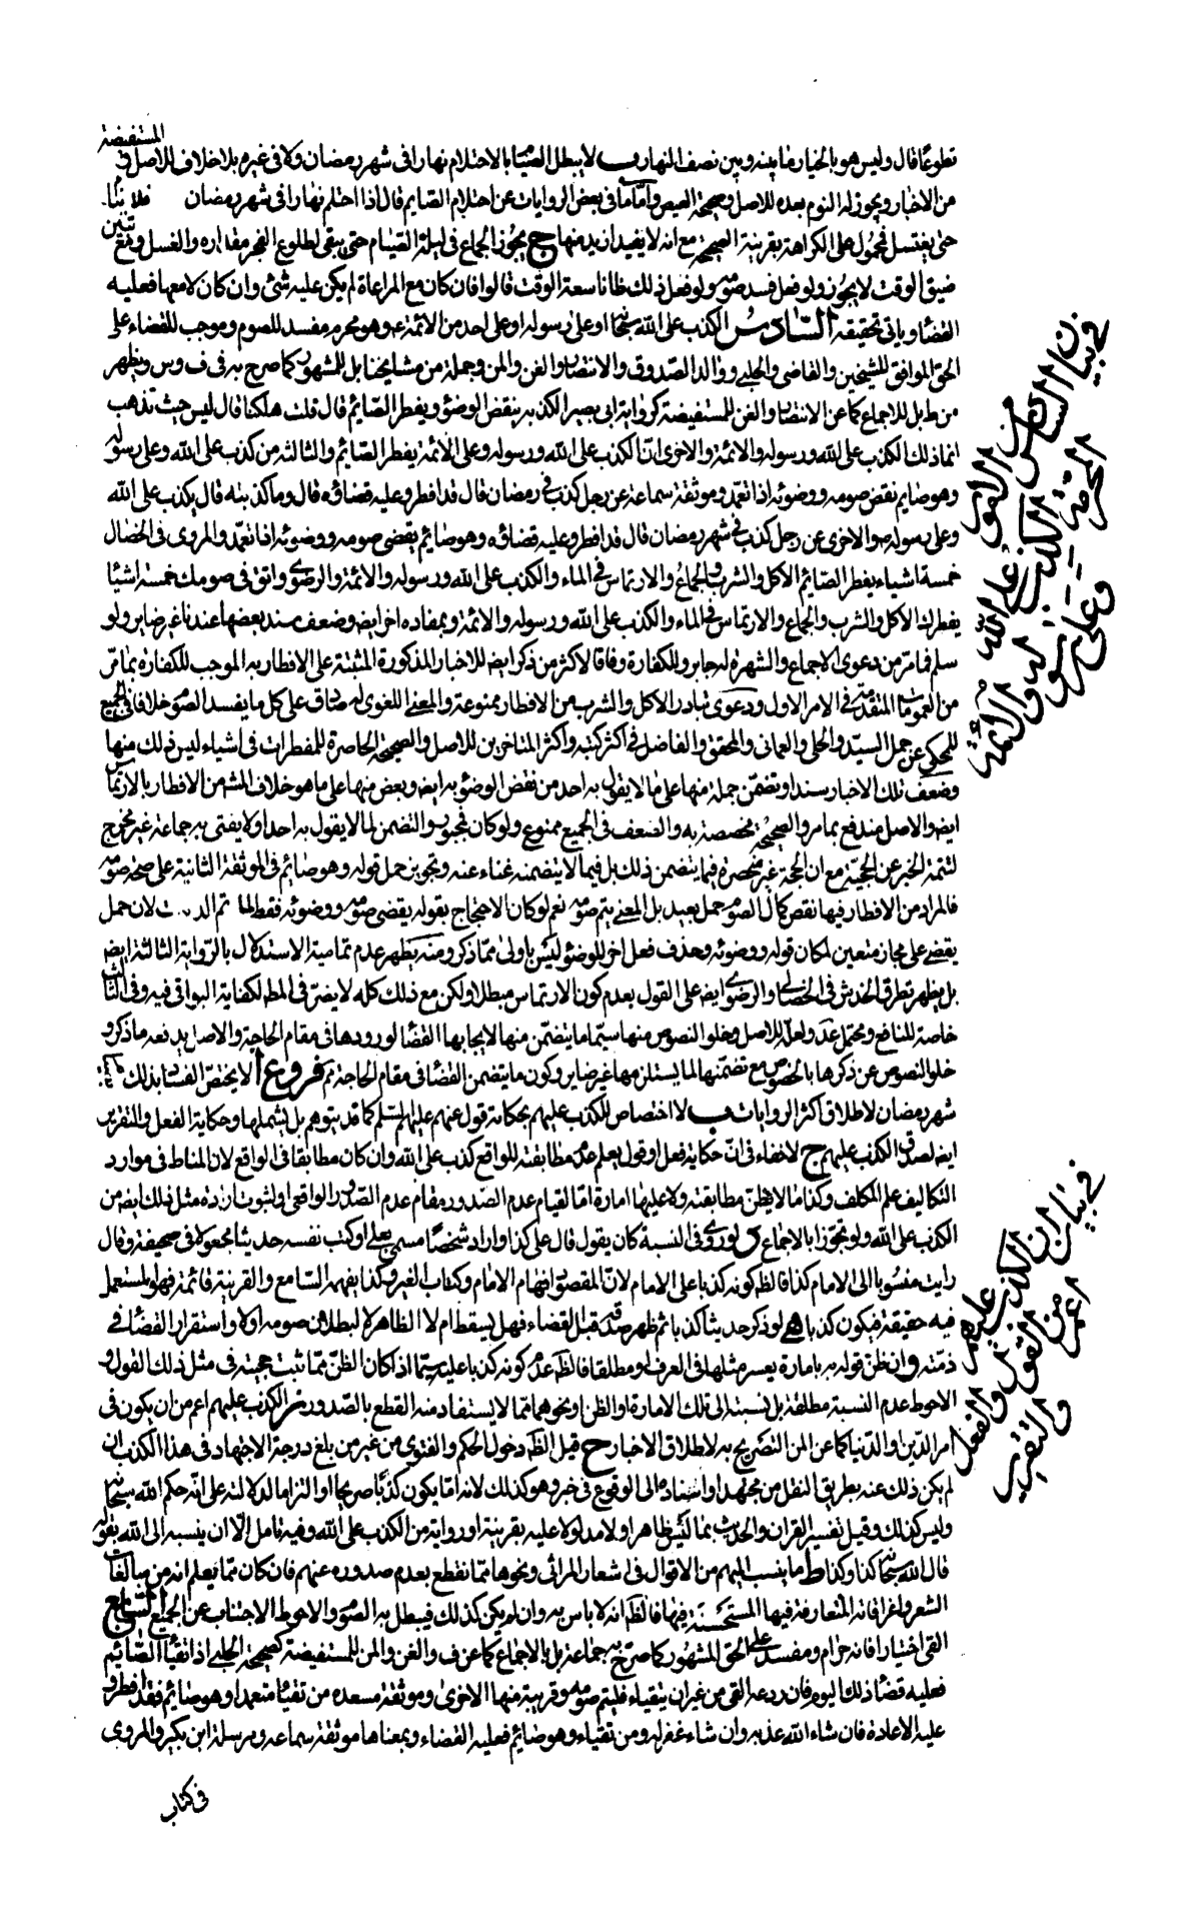 المستفيضة
تطوعا قال وليس هو بالخيار ما بينه وبين نصف النهار ب لا يبطل الصيام بالاحتلام نهارا في شهر رمضان ولا في غيره بلا خلاف للاصل في
من الاخبار ويجوز له النوم بعده للاصل وصحيحة العيص واما ما في بعض الروايات عن احتلام الصايم قال اذا احتلم نهارا في شهر رمضان فلا ينام
حتى يغتسل فمحمول على الكراهة بقرينة الصحيحة مع انه لا يفيد ازيد منها ج يجوز الجماع في ليلة الصيام حتى يبقى لطلوع الفجر مقداره والغسل ومع تبين
ضيق الوقت لا يجوز ولو فعل فسد صومه ولو فعل ذلك ظانا سعة الوقت قالوا فان كان مع المراعاة لم يكن عليه شئ وان كان لا معها فعليه
القضاء وياتى تحقيقه السادس الكذب على الله سبحانه او على رسوله او على احد من الائمة ع وهو محرم مفسد للصوم وموجب للقضاء على
الحق الموافق للشيخين والقاضي والحلبي ووالد الصدوق والانتصار والغن والمن وجملة من مشايخنا بل المشهور كما صرح به في ف وس ويظهر
من ط بل للاجماع كما عن الانتصار والغن للمستفيضة كرواية ابي بصير الكذبه ينقض الوضوء ويفطر الصائم قال قلت هلكنا قال ليس حيث تذهب
انما ذلك الكذب على الله ورسوله والائمة والاخرى ان الكذب على الله ورسوله وعلى الائمة يفطر الصائم والثالثة من كذب على الله وعلى رسوله
وهو صايم نقض صومه ووضوئه اذا تعمد وموثقة سماعة عن رجل كذب في رمضان قال قد افطر وعليه قضاؤه قال وما كذبته قال يكذب على الله
وعلى رسوله ص والاخرى عن رجل كذب في شهر رمضان قال قد افطر وعليه قضاؤه وهو صايم يقضى صومه ووضوئه اذا تعمد والمروى في الخصال
خمسة اشياء يفطر الصائم الاكل والشرب والجماع والارتماس في الماء والكذب على الله ورسوله والائمة والرضوى واتق في صومك خمسة اشياء
يفطرك الاكل والشرب والجماع والارتماس في الماء والكذب على الله ورسوله والائمة وبمفاده اخر ايض وضعف سند بعضها عندنا غير ضاير ولو
سلم فما مر من دعوى الاجماع والشهرة له جابر وللكفارة وفاقا لاكثر من ذكر ايض للاخبار المذكورة المثبتة على الافطار به الموجب للكفارة بما مر
من العمومات المتقدمة في الامر الاول ودعوى تبادر الاكل والشرب من الافطار ممنوعة والمعنى اللغوى له صادق على كل ما يفسد الصوم خلافا في الجميع
للمحكى عن جمل السيد والحلى والعمانى والمحقق والفاضل في اكثر كتبه واكثر المتاخرين للاصل والصحيحة الحاصرة للمفطرات في اشياء ليس ذلك منها
وضعف تلك الاخبار سندا وتضمن جملة منها على ما لا يقول به احد من نقض الوضوء به ايض وبعض منها على ما هو خلاف المش من الافطار بالارتماس
ايض والاصل مندفع بما مر والصحيحة مخصصة به والضعف في الجميع ممنوع ولو كان فمجبور والتضمن لما لا يقول به احد او لا يفتى به جماعة غير مخرج
لتتمة الخبر عن الحجية مع ان الحجة غير منحصرة فيما يتضمن ذلك بل فيما لا يتضمنه غناء عنه وتجويز حمل قوله وهو صايم في الموثقة الثانية على صحة صومه
فالمراد من الافطار فيها نقص كمال الصوم حمل بعيد بل المعنى يتم صومه نعم لو كان الاحتجاج بقوله يقضى صومه ووضوئه فقط لما تم لان حمل
يقضى على مجاز متعين لمكان قوله ووضوئه وحذف فعل اخر للوضوء ليس باولى مما ذكر ومنه يظهر عدم تمامية الاستدلال بالرواية الثالثة ايض
بل يظهر تطرق الخدش في الخصالى والرضوى ايض على القول بعدم كون الارتماس مبطلا ولكن مع ذلك كله لا يضر في المط لكفاية البواقي فيه وفي الثانى
خاصة للنافع ومحتمل عد ولعله للاصل وخلو النصوص منها سيما ما يتضمن منها لايجابها القضاء لورودها في مقام الحاجة والاصل يدفعه ما ذكر و
خلو النصوص عن ذكرها بالخصوص مع تضمنها لما يستلزمها غير ضاير وكون ما يتضمن القضاء في مقام الحاجة ثم فروع ا لا يختص الفساد بذلك
شهر رمضان لاطلاق اكثر الروايات ب لا اختصاص للكذب عليهم بحكاية قول عنهم عليهم السلم كما قد يتوهم بل يشملها وحكاية الفعل والتقرير
ايض لصدق الكذب عليهم ج لا خفاء في ان حكاية فعل او قول يعلم عدم مطابقته للواقع كذب على الله وان كان مطابقا في الواقع لان المناط في موارد
التكاليف علم المكلف وكذا ما لا يظن مطابقته ولا عليها امارة اما لقيام عدم الصدور مقام عدم الصدور الواقعى او لثبوت ارادة مثل ذلك ايض من
الكذب على الله ولو تجوزا بالاجماع د لو ورى في النسبة كان يقول قال على كذا واراد شخصا مسمى بعلى او كتب نفسه حديثا مجعولا في صحيفة وقال
رايت منسوبا الى الامام كذا فالظ كونه كذبا على الامام لان المقصود افهام الامام وكتاب الغير وكذا يفهمه السامع والقرينة قائمة فهو المستعمل
فيه حقيقة فيكون كذبا ه لو ذكر حديثا كذبا ثم ظهر صدقه قبل القضاء فهل يسقط ام لا الظاهر لا لبطلان صومه اولا واستقرار القضاء في
ذمته و ان ظن قوله به بامارة يعسر مثلها في العرف ومطلقا فالظ عدم كونه كذبا عليه سيما اذا كان الظن مما ثبت حجيته في مثل ذلك القول و
الاحوط عدم النسبة مطلقة بل نسبته الى تلك الامارة والظن او نحوهما مما لا يستفاد منه القطع بالصدور ز الكذب عليهم اعم من ان يكون في
امر الدين او الدنيا كما عن المن التصريح به لاطلاق الاخبار ح قيل الظ دخول الحكم والفتوى من غير من بلغ درجة الاجتهاد في هذا الكذب ان
لم يكن ذلك عنه بطريق النقل من مجتهد او اسناده الى الوقوع في خبر وهو كذلك لانه اما يكون كذبا صريحا او التزاما لدلالته على انه حكم الله سبحانه
وليس كذلك وقيل تفسير القران والحديث بما ليس ظاهرا ولا مدلولا عليه بقرينة او رواية من الكذب على الله وفيه تامل الا ان ينسبه الى الله بقوله
قال الله سبحانه كذا وكذا ط ما ينسب اليهم من الاقوال في اشعار المراثى ونحوها مما نقطع بعدم صدوره عنهم فان كان مما يعلم انه من مبالغات
الشعر واغراقاته المتعارفة فيها المستحسنة فيها فالظ انه لا باس به وان لم يكن كذلك فيبطل به الصوم والاحوط الاجتناب عن الجميع السابع
القئ اختيارا فانه حرام ومفسد على الحق المشهور كما صرح به جماعة بل بالاجماع كما عن ف والغن والمن للمستفيضة كصحيحة الحلبى اذا تقيأ الصائم
فعليه قضاء ذلك اليوم فان ذرعه القئ من غير ان يتقياء فليتم صومه وقريبة منها الاخرى وموثقة مسعدة من تقيأ متعمدا وهو صايم فقد افطر و
عليه الاعادة فان شاء الله عذبه وان شاء غفر له ومن تقياء وهو صايم فعليه القضاء وبمعناها موثقة سماعه ومرسلة ابن بكير والمروى
في كتاب
في بيان السادس
من الامور
المحرمة الكذب
على الله
وعلى رسوله
والائمة
في بيان ان الكذب عليهم
اعم من القول والفعل
والتقرير